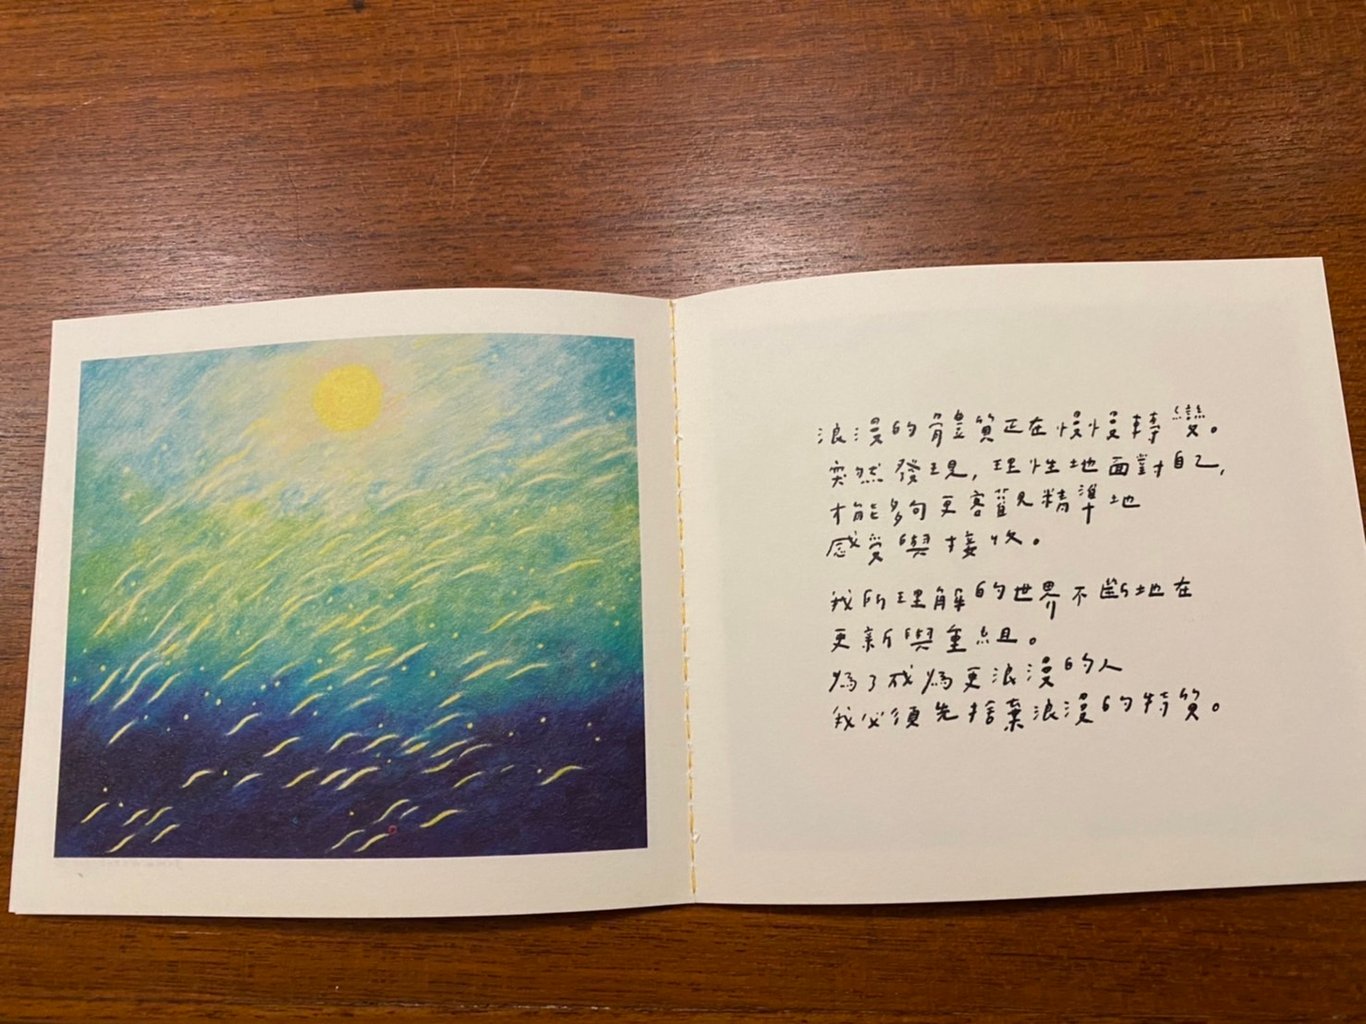 浪漫的體質正在慢慢轉變。
突然發現,理性地面對自己,
才能夠更客觀精準地
感受與接收。
我所理解的世界不斷地在
更新與重組。
為了成為更浪漫的人
我必須先捨棄浪漫的特質。